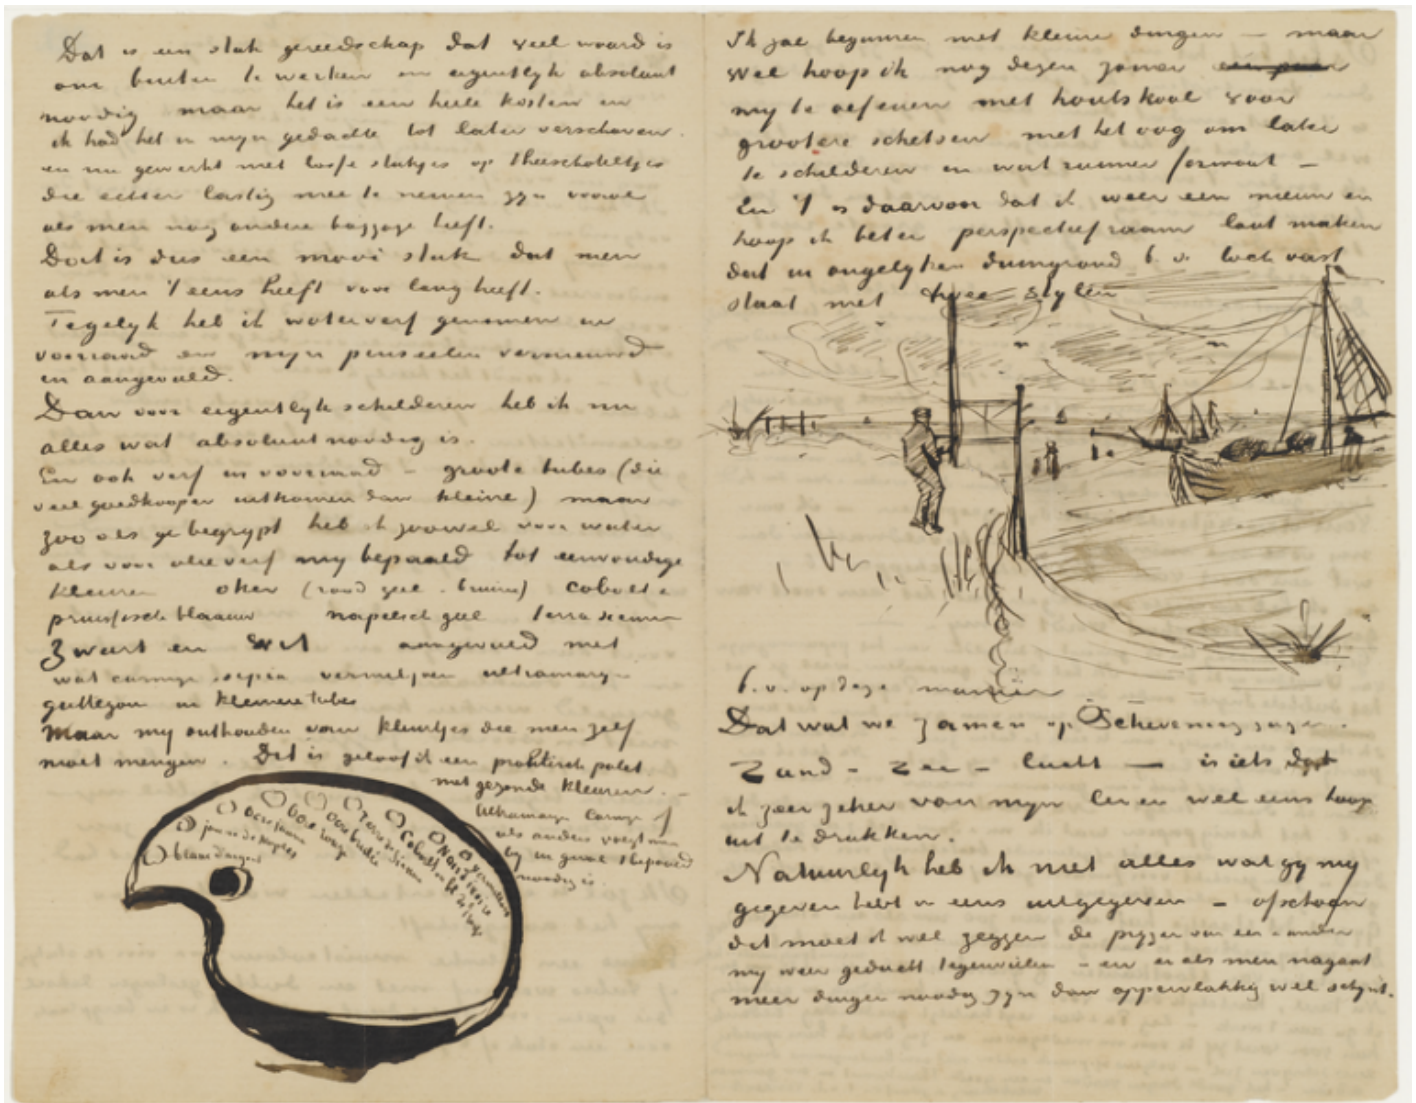 Dat is een stuk gereedschap dat veel waard is
om buiten te werken en eigentlyk absoluut
noodig maar het is een heele kosten en
ik had het in myn gedachte tot later verschoven
en nu gewerkt met losse stukjes op theeschoteltjes
die echter lastig mee te nemen zyn vooral
als men nog andere baggage heeft.
Dat is dus een mooi stuk dat men
als men 't eens heeft voor lang heeft.
Tegelyk heb ik waterverf genomen in
voorraad en myn penseelen vernieuwd
en aangevuld.
Dan voor eigentlyk schilderen heb ik nu
alles wat absoluut noodig is.
En ook verf in voorraad – groote tubes (die
veel goedkooper uitkomen dan kleine) maar
zoo als ge begrypt heb ik zoowel voor water
als voor olieverf my bepaald tot eenvoudige
kleuren oker (rood geel bruin) cobalt &
pruissisch blaauw napelsch geel terra sienna
Zwart en Wit aangevuld met
wat carmyn sepia vermiljoen ultramaryn
guttegom in kleinere tubes
Maar my onthouden van kleurtjes die men zelf
moet mengen. Dit is geloof ik een praktisch palet
met gezonde kleuren. –
Ultramaryn Carmyn of
als anders voegt men
by in geval 't bepaald
noodig is
blanc d'argent
jaune de Naples
ocre jaune
ocre rouge
ocre brulée
Terre de sienne
Cobalt
Noir
vermillon
Ik zal beginnen met kleine dingen – maar
wel hoop ik nog dezen zomer
my te oefenen met houtskool voor
grootere schetsen met het oog om later
te schilderen in wat ruimer formaat –
En 't is daarvoor dat ik weer een nieuw en
hoop ik beter perspectiefraam laat maken
dat in ongelyken duingrond b.v. toch vast
staat met twee stylen
b.v. op deze manier
Dat wat we zamen op Schevening zagen.
Zand – Zee – lucht — is iets dat
ik zeer zeker van myn leven wel eens hoop
uit te drukken.
Natuurlyk heb ik niet alles wat gy my
gegeven hebt in eens uitgegeven – ofschoon
dit moet ik wel zeggen de pryzen van een & ander
my weer geducht tegenvielen – en er als men nagaat
meer dingen noodig zyn dan oppervlakkig wel schynt.